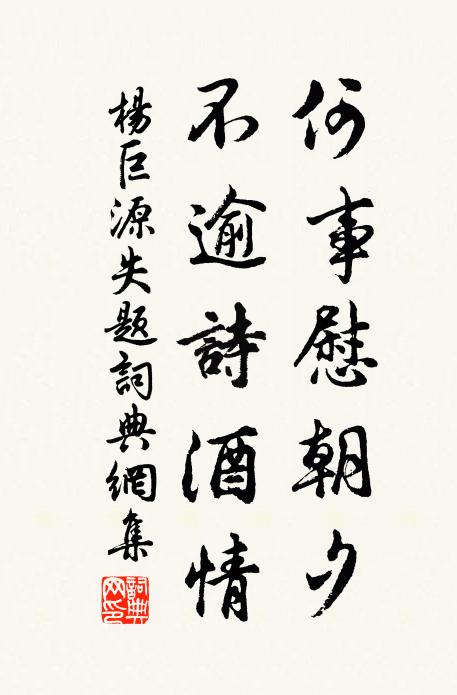 何事慰朝夕
不逾詩酒情
楊巨源失題詞典網集
詞典網印